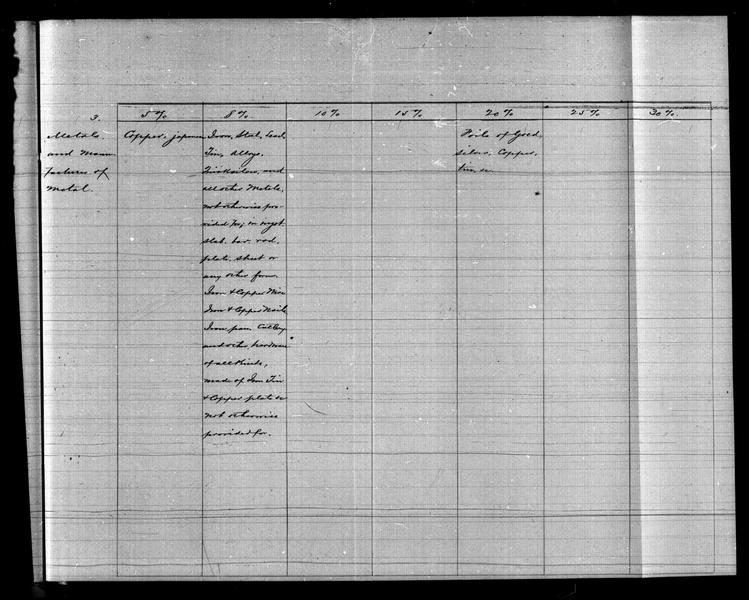 3. 5% 8% 10% 15% 20% 25% 30%
Metals
and Manu
factures of
Metal.
Copper, japanese
Iron, Slab, Lead,
Tin, Alloys,
and
all other Metals,
not otherwise pro-
vided for; in ingot
slab, bar, rod,
plate, sheet or
any other form
Iron & Copper Wire
Iron & Copper Nails
Iron pan Cutlery
and other hardware
of all kinds,
made of Iron Tin
& Copper plate &c
not otherwise
provided for.
Foils of Gold
silver, Copper,
tin, &c